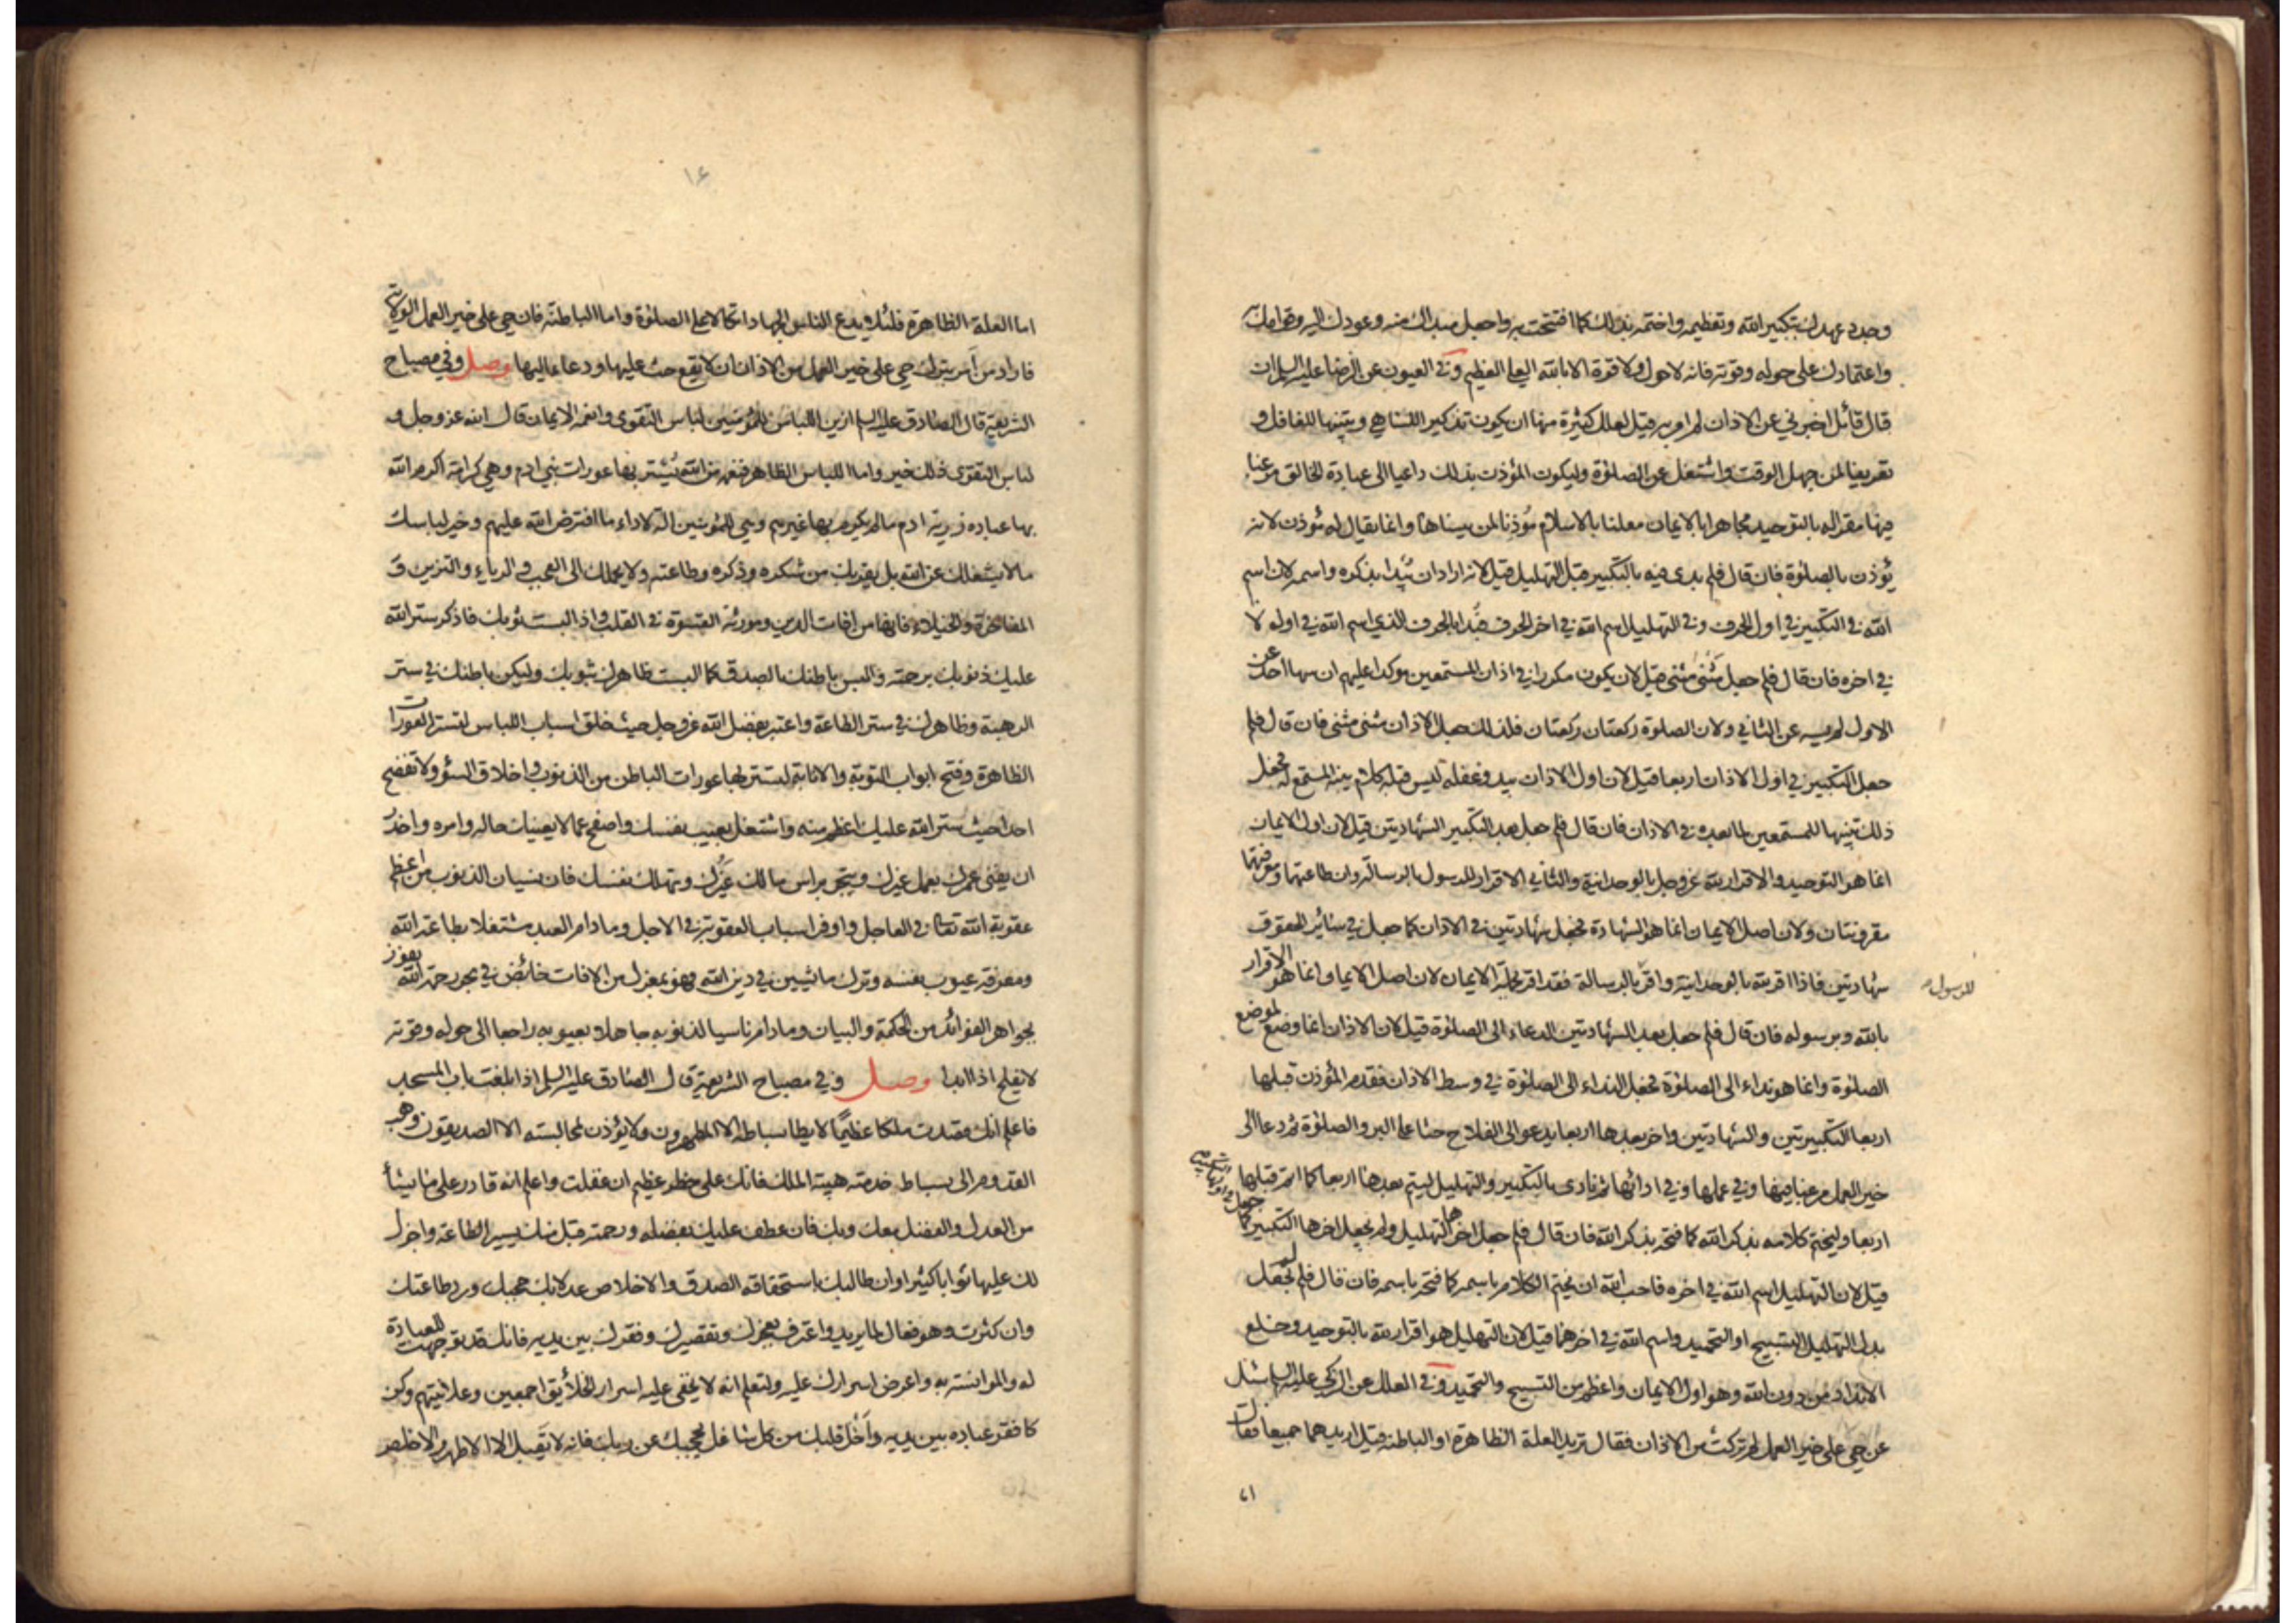 وجدد عهدك بتكبير الله وتعظيمه واختمه بذلك كما افتتحت به واجعل مبدأك منه وعودك اليه وقوامك به
واعتمادك على حوله وقوته فانه لا حول ولا قوة الا بالله العلي العظيم وفي العيون عن الرضا عليه السلم ان
قال قائل اخبرني عن الاذان لم امر به قيل لعلل كثيرة منها ان يكون تذكير الساهي وتنبيها للغافل و
تعريفا لمن جهل الوقت واشتغل عن الصلوة وليكون المؤذن بذلك داعيا الى عبادة الخالق مرغبا
فيها مقرا له بالتوحيد مجاهرا بالايمان معلنا بالاسلام مؤذنا لمن يتساها وانما يقال له مؤذن لانه
يؤذن بالصلوة فان قال فلم بدى فيه بالتكبير قبل التهليل قيل لانه اراد ان يبدا بذكره واسمه لان اسم
الله في التكبير في اول الحرف وفي التهليل اسم الله في اخر الحرف فبدا بالحرف الذي اسم الله في اوله لا
في اخره فان قال فلم جعل مثنى مثنى قيل لان يكون مكررا في اذان المستمعين موكدا عليهم ان سها احد عن
الاول لم يسه عن الثاني ولان الصلوة ركعتان ركعتان فلذلك جعل الاذان مثنى مثنى فان قال فلم
جعل التكبير في اول الاذان اربعا قيل لان اول الاذان يبدو غفلة ليس قبله كلام ينبه المستمع له فجعل
ذلك تنبيها للمستمعين لما بعده في الاذان فان قال فلم جعل بعد التكبير الشهادتين قيل لان اول الايمان
انما هو التوحيد والاقرار لله عز وجل بالوحدانية والثاني الاقرار للرسول بالرسالة وان طاعتهما ومعرفتهما
مقرونتان ولان اصل الايمان انما هو الشهادة فجعل شهادتين في الاذان كما جعل في سائر الحقوق
شهادتين فاذا اقر لله بالوحدانية واقر بالرسالة فقد اقر بجملة الايمان لان اصل الايمان انما هو الاقرار
للرسول
بالله وبرسوله فان قال فلم جعل بعد الشهادتين الدعاء الى الصلوة قيل لان الاذان انما وضع لموضع
الصلوة وانما هو نداء الى الصلوة فجعل النداء الى الصلوة في وسط الاذان فقدم المؤذن قبلها
اربعا التكبيرتين والشهادتين واخر بعدها اربعا يدعو الى الفلاح حثا على البر والصلوة ثم دعا الى
خير العمل مرغبا فيها وفي عملها وفي ادائها ثم نادى بالتكبير والتهليل ليتم بعدها اربعا كما اتم قبلها
اربعا وليختم كلامه بذكر الله كما فتحه بذكر الله فان قال فلم جعل اخرها التهليل ولم يجعل اخرها التكبير كما
جعل في اولها التكبير
قيل لان التهليل اسم الله في اخره فاحب الله ان يختم الكلام باسمه كما فتحه باسمه فان قال فلم لم يجعل
بدل التهليل التسبيح او التحميد واسم الله في اخرهما قيل لان التهليل هو اقرار لله بالتوحيد وخلع
الانداد من دون الله وهو اول الايمان واعظم من التسبيح والتحميد وفي العلل عن الزكي عليه السلم سئل
عن حي على خير العمل لم تركت من الاذان فقال تريد العلة الظاهرة او الباطنة قيل اريدهما جميعا فقال
١٤
اما العلة الظاهرة فلئلا يدع الناس الجهاد اتكالا على الصلوة واما الباطنة فان حي على خير العمل الولاية
فاراد من امر بترك حي على خير العمل من الاذان ان لا يقع حث عليها ودعاء اليها وصل وفي مصباح
الشريعة قال الصادق عليه السلم ازين اللباس للمؤمنين لباس التقوى وانعمه الايمان قال الله عز وجل و
لباس التقوى ذلك خير واما اللباس الظاهر فنعمة من الله يستر بها عورات بني ادم وهي كرامة اكرم الله
بها عباده ذرية ادم ما لم يكرم بها غيرهم وهي للمؤمنين الة لاداء ما افترض الله عليهم وخير لباسك
ما لا يشغلك عن الله بل يقربك من شكره وذكره وطاعته ولا يحملك الى العجب والرياء والتزين و
المفاخرة والخيلاء فانها من افات الدين ومورثة القسوة في القلب واذا لبست ثوبك فاذكر ستر الله
عليك ذنوبك برحمته والبس باطنك بالصدق كما البست ظاهرك بثوبك وليكن باطنك في ستر
الرهبة وظاهرك في ستر الطاعة واعتبر بفضل الله عز وجل حيث خلق اسباب اللباس لتستر العورات
الظاهرة وفتح ابواب التوبة والانابة لتستر بها عورات الباطن من الذنوب واخلاق السوء ولا تفضح
احدا حيث ستر الله عليك اعظم منه واشتغل بعيب نفسك واصفح عما لا يعنيك حاله وامره واحذر
ان يفنى عمرك بعمل غيرك ويتجر براس مالك غيرك وتهلك نفسك فان نسيان الذنوب من اعظم
عقوبة الله تعالى في العاجل واوفر اسباب العقوبة في الاجل وما دام العبد مشتغلا بطاعة الله
ومعرفة عيوب نفسه وترك ما يشين في دين الله فهو بمعزل من الافات خائض في بحر رحمة الله يفوز
بجواهر الفوائد من الحكمة والبيان وما دام ناسيا لذنوبه جاهلا بعيوبه راجعا الى حوله وقوته
لا يفلح اذا ابدا وصل وفي مصباح الشريعة قال الصادق عليه السلم اذا بلغت باب المسجد
فاعلم انك قصدت ملكا عظيما لا يطا بساطه الا المطهرون ولا يؤذن لمجالسته الا الصديقون وهب
القدوم الى بساط خدمته هيبة الملك فانك على خطر عظيم ان غفلت واعلم انه قادر على ما يشاء
من العدل والفضل معك وبك فان عطف عليك بفضله ورحمته قبل منك يسير الطاعة واجزل
لك عليها ثوابا كثيرا وان طالبك باستحقاقه الصدق والاخلاص عدلا بك حجبك ورد طاعتك
وان كثرت وهو فعال لما يريد واعترف بعجزك وتقصيرك وفقرك بين يديه فانك قد توجهت للعبادة
له والموانسة به واعرض اسرارك عليه ولتعلم انه لا يخفى عليه اسرار الخلائق اجمعين وعلانيتهم وكن
كافقر عباده بين يديه واخل قلبك من كل شاغل يحجبك عن ربك فانه لا يقبل الا الاطهر والاخلص